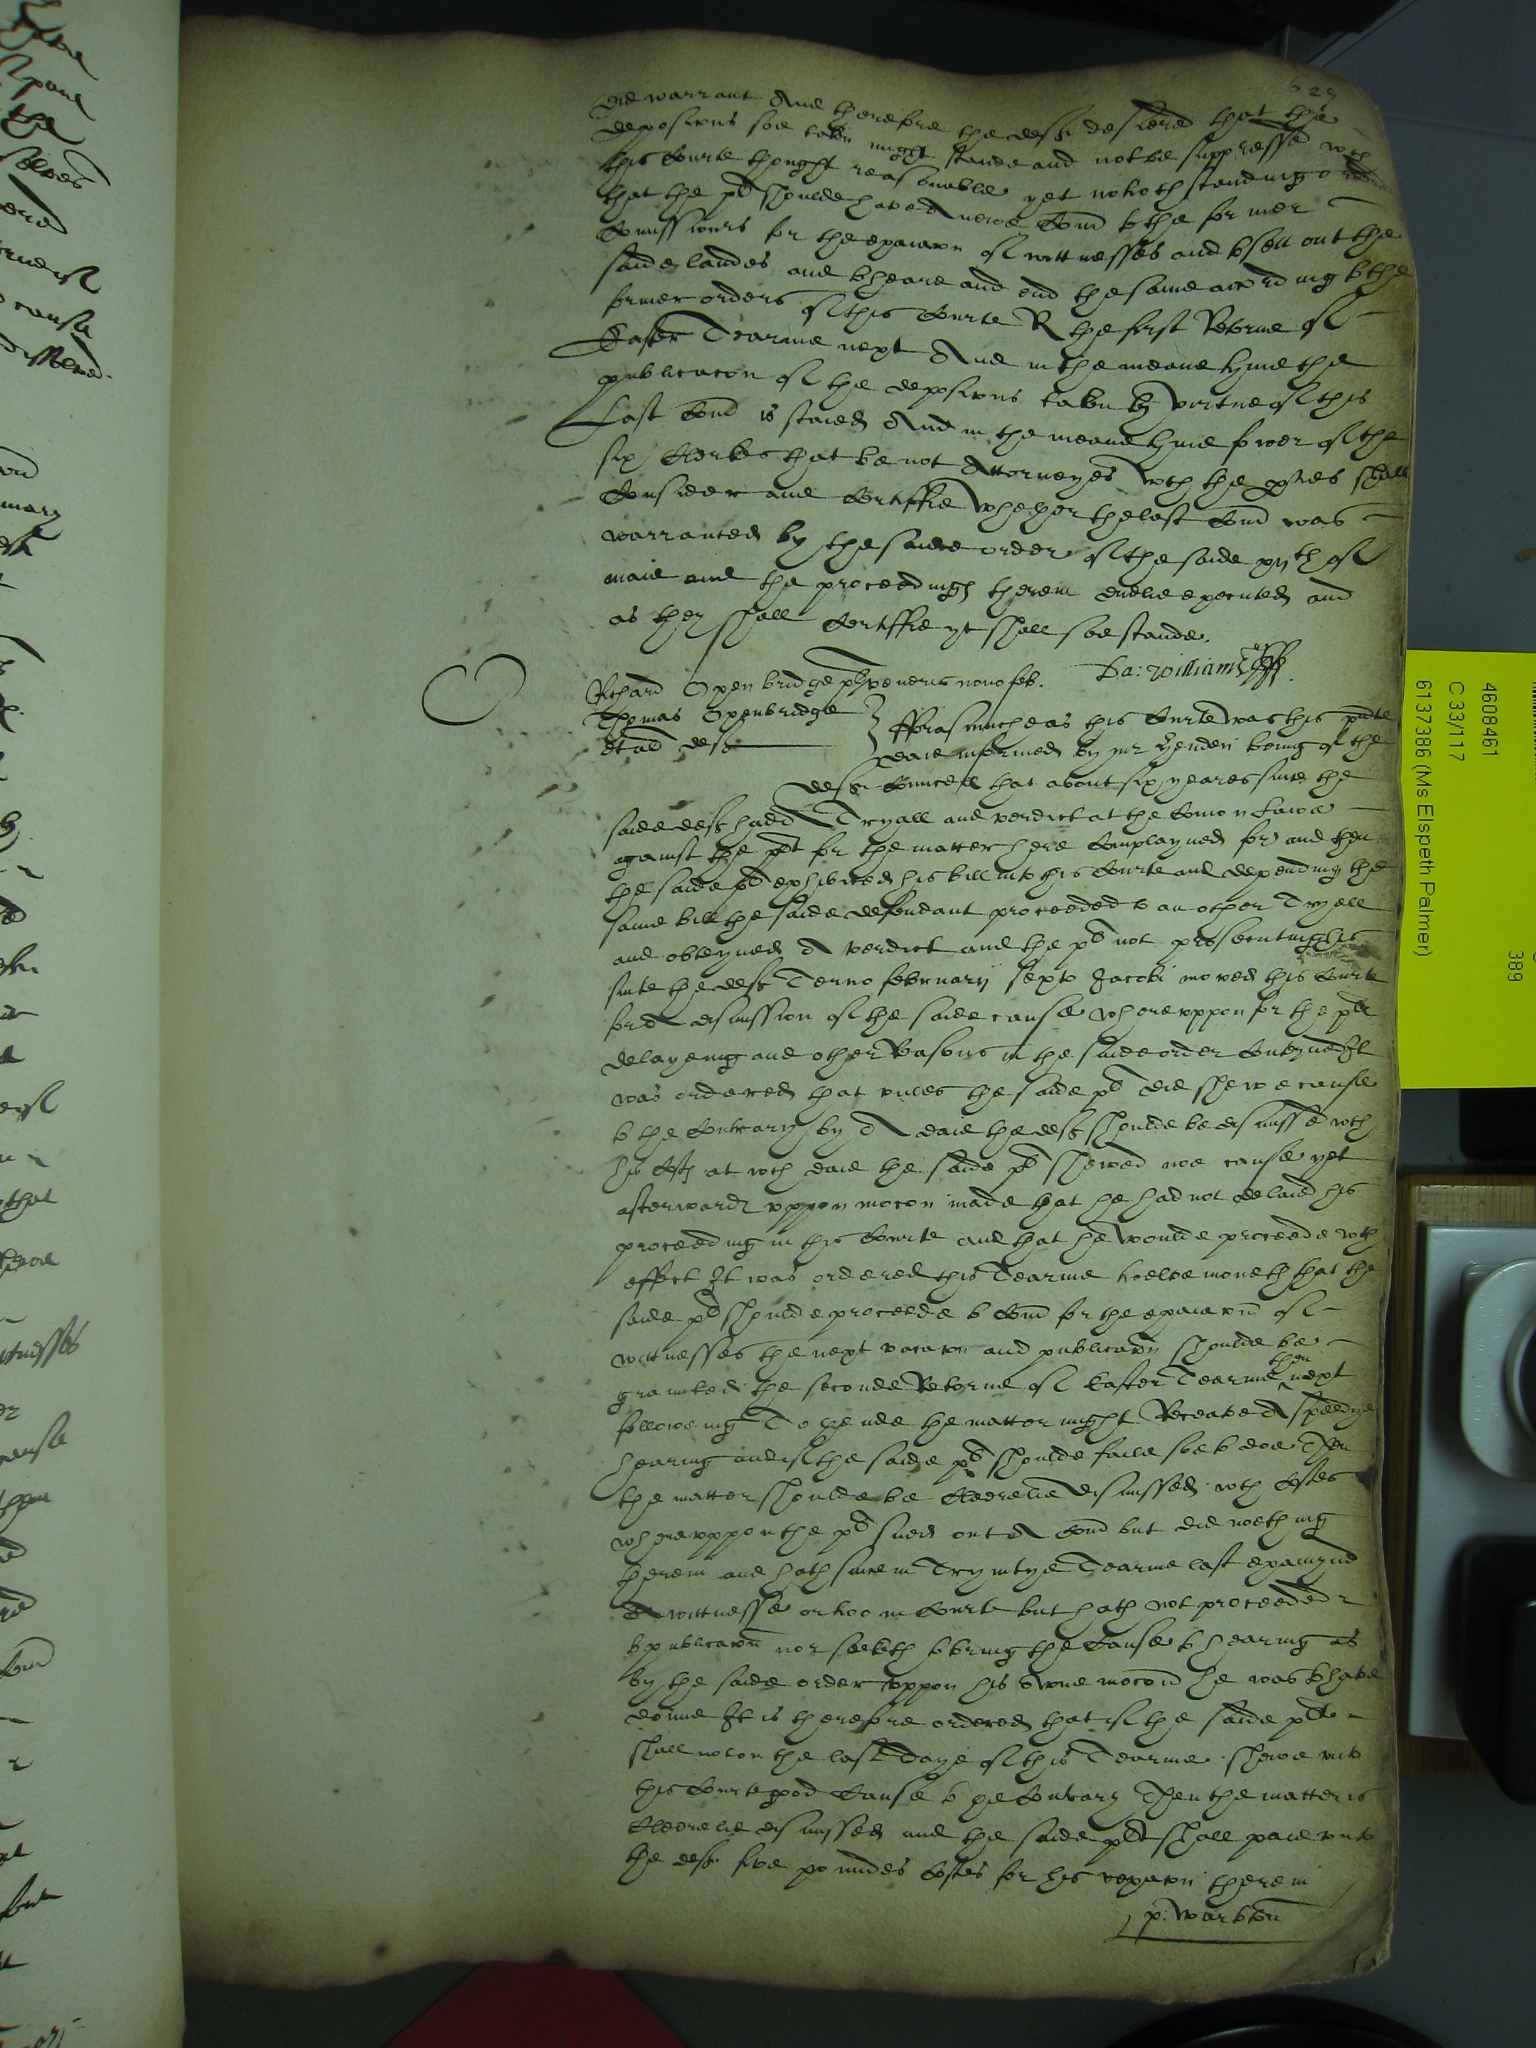 did warrant And therefore the deft desired that the
deposicons soe taken might stande and not be suppressed wch
this Courte thought reasonable yet notwithstandinge
that the plt shoulde have A newe Comd to the former
Comissioners for the examiacon of wittnesses and to sett out the
saide landes and to heare and end the same accordinge to the
former orders of this Courte R the first Retorne of
Easter Tearme next And in the meane tyme the
publicacon of the deposicons taken by vertue of this
Last Comd is staied And in the meane tyme fower of the
six Clerkes that be not Attorneyes wth the pties shall
Consider and Certiffie whether the last Comd was
warranted by the saide order of the saide xvth of
maie and the proceedings therein duelie executed and
as they shall Certiffie yt shall soe stande.
Da: Williams
Richard Openbridge plt veneris nono feb.
Thomas Openbridge
et al deft
fforasmuche as this Courte was this pnte
daie informed by mr Henden being of the
defts Councell that about six yeares since the
saide deft hadd A Tryall and verdict at the Comon Lawe
against the plt for the matter here Complayned for and then
the saide plt exhibited his bill into this Courte and depending the
same bill the saide defendant proceeded to an other Tryall
and obteyned A verdict and the plt not prosecuting his
suite the deft Terno february septo Jacobi moved this Courte
for A dismission of the saide cause whereuppon for the plts
delayeing and other Reasons in the saide order Conteyned It
was ordered that unles the saide plt did shewe cause
to the Contrary by A daie the deft shoulde be dismissed wth
his Costs at wch daie the saide plt shewed noe cause yet
afterwards uppon mocon made that he had not delaid his
proceeding in this Courte and that he woulde proceede wth
effect It was ordered this Tearme twelve moneth that the
saide plt shoulde proceede to Comd for the examiacon of
wittnesses the next vacacon and publicacon shoulde be
graunted the seconde Retorne of Easter Tearme then next
following To thende the matter might Receave A speedye
hearing and if the saide plt shoulde faile soe to doe Then
the matter shoulde be Cleerelie dismissed wth Costes
whereuppon the plt sued out A Comd but did noething
therein and hath since in Trynitye Tearme last examyned
A wittnesse or twoo in Courte but hath not proceeded
to publicacon nor seeketh to bring the Cause to hearing as
by the saide order uppon his owne mocon he was to have
donne It is therefore ordered that if the saide plt
shall not on the last Daye of this Tearme shewe unto
this Courte good Cause to the Contrary Then the matter is
Cleerelie dismissed and the saide plt shall paie unto
the deft five poundes Costes for his vexacon therein
p: Warbton
4608461
C 33/117
6137386 (Ms Elspeth Palmer)
389